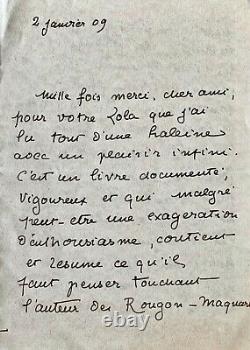 2 janvier 09
Mille fois merci, cher ami,
pour votre Zola que j'ai
lu tout d'une haleine
avec un plaisir infini.
C'est un livre documenté,
vigoureux et qui malgré
peut-etre une exageration
d'enthousiasme, contient
et resume ce qu'il
faut penser touchant
l'auteur des Rougon-Maquar
©ebay